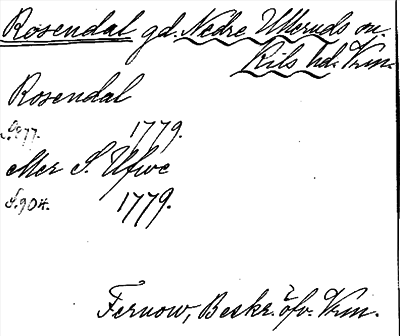 Rosendal gd. Nedre Ulleruds sn.
Kils hd. Vrm.
Rosendal
S. 77. 1779.
eller S. Ufwe
S. 904. 1779.
Fernow, Beskr. öfv. Vrm.